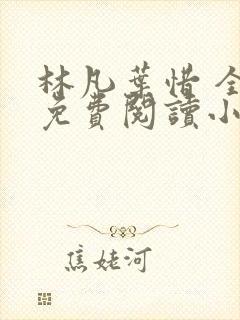 林凡葉惜全
免費閱讀小
焦姥河